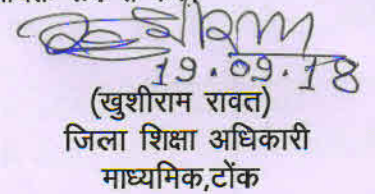 19.09.18
(खुशीराम रावत)
जिला शिक्षा अधिकारी
माध्यमिक,टोंक